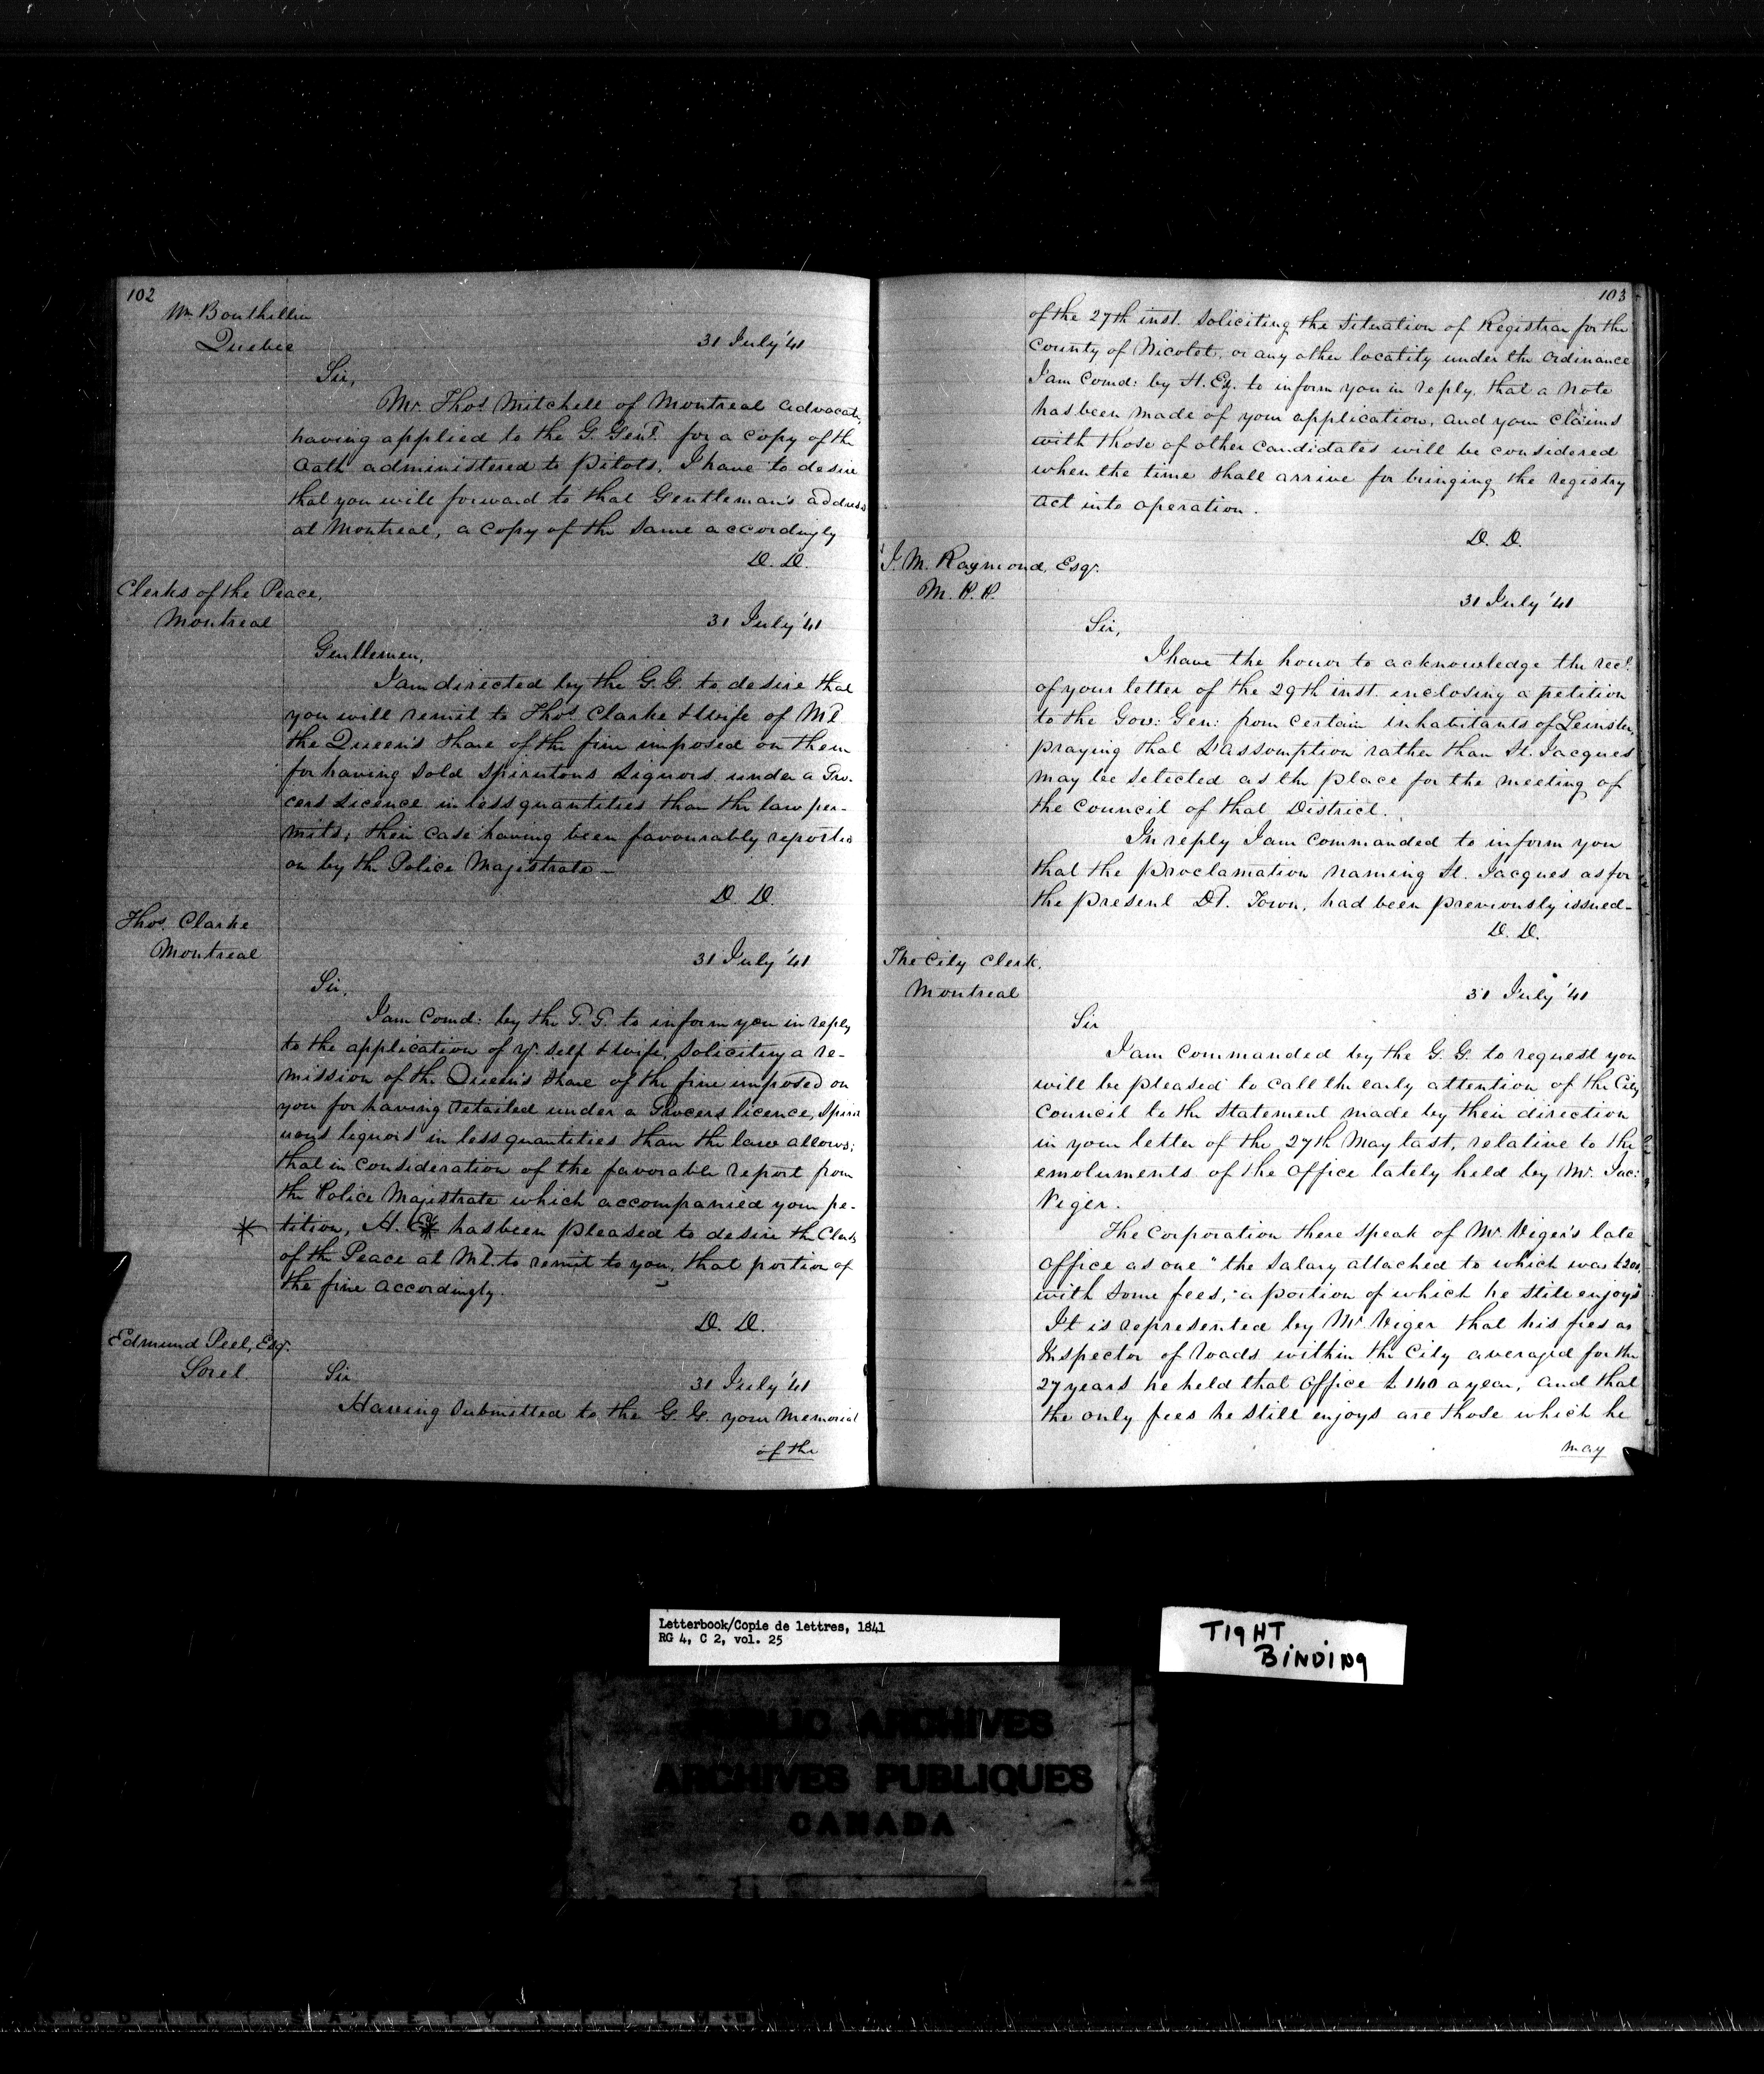 102
Mr. Bouthillier
Quebec
31 July '41
Sir,
Mr. Thos. Mitchell of Montreal advocate,
having applied to the G. Genl. for a copy of the
Oath administered to Pilots, I have to desire
that you will forward to that Gentleman's address
at Montreal, a copy of the same accordingly
D. D.
Clerks of the Peace,
Montreal
31 July '41
Gentlemen,
I am directed by the G. G. to desire that
you will remit to Thos. Clarke & wife of Ml.
the Queen's share of the fine imposed on them
for having sold spirutous Liquors under a Gro-
cers Licence in less quantities than the law per-
mits; their case having been favourably reported
on by the Police Magistrate —
D. D.
Thos. Clarke
Montreal
31 July '41
Sir,
I am Comd: by the G. G. to inform you in reply
to the application of yr. self & wife, soliciting a re-
mission of the Queen's share of the fine imposed on
you for having retailed under a Grocers licence, spirit
uous liquors in less quantities than the law allows;
that in consideration of the favorable report from
the Police Magistrate which accompanied your pe-
tition, H. E. has been pleased to desire the Clerks
of the Peace at Ml. to remit to you, that portion of
the fine accordingly.
D. D.
Edmund Peel, Esqr.
Sorel
Sir
31 July '41
Having submitted to the G. G. your memorial
of the
103
of the 27th inst. soliciting the situation of Registrar for the
County of Nicolet, or any other locality under the ordinance
I am Comd: by H. Ex. to inform you in reply, that a note
has been made of your application, and your claims
with those of other candidates will be considered
when the time shall arrive for bringing the registry
act into operation.
D. D.
J. M. Raymond, Esqr.
M. P. P.
31 July '41
Sir,
I have the honor to acknowledge the rect.
of your letter of the 29th inst. inclosing a petition
to the Gov: Gen: from certain inhabitants of Leinster,
praying that L'assomption rather than St. Jacques
may be selected as the place for the meeting of
the Council of that District.
In reply I am commanded to inform you
that the proclamation naming St. Jacques as for
the present Dt. Town, had been previously issued—
D. D.
The City Clerk,
Montreal
31 July '41
Sir
I am commanded by the G. G. to request you
will be pleased to call the early attention of the City
Council to the statement made by their direction
in your letter of the 27th May last, relative to the
emoluments of the office lately held by Mr. Jac:
Viger.
The Corporation there speak of Mr. Viger's late
office as one "the salary attached to which was £200,
with some fees, a portion of which he still enjoys"
It is represented by Mr. Viger that his fees as
Inspector of roads within the City averaged for the
27 years he held that office £ 140 a year, and that
the only fees he still enjoys are those which he
may
Letterbook/Copie de lettres, 1841
RG 4, C 2, vol. 25
TIGHT
BINDING
PUBLIC ARCHIVES
ARCHIVES PUBLIQUES
CANADA